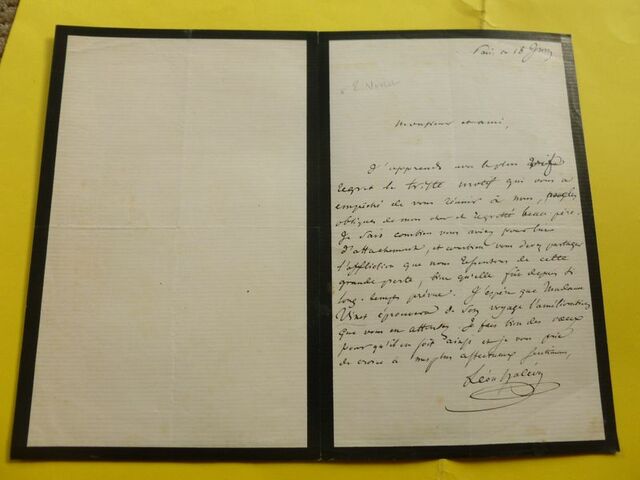 Paris ce 18 Juin
Monsieur et ami,
J'apprends avec le plus vif
regret le triste motif qui vous a
empêché de vous réunir à nous,
obsèques de mon cher et regretté beau père.
Je sais combien vous aviez pour lui
d'attachement, et combien vous devez partager
l'affliction que nous ressentons de cette
grande perte, bien qu'elle fût depuis si
long-temps prévue. J'espère que Madame
Vinet éprouvera de son voyage l'amélioration
que vous en attendez. Je fais bien des vœux
pour qu'il en soit ainsi et je vous prie
de croire à mes plus affectueux sentimens,
Léon Halévy